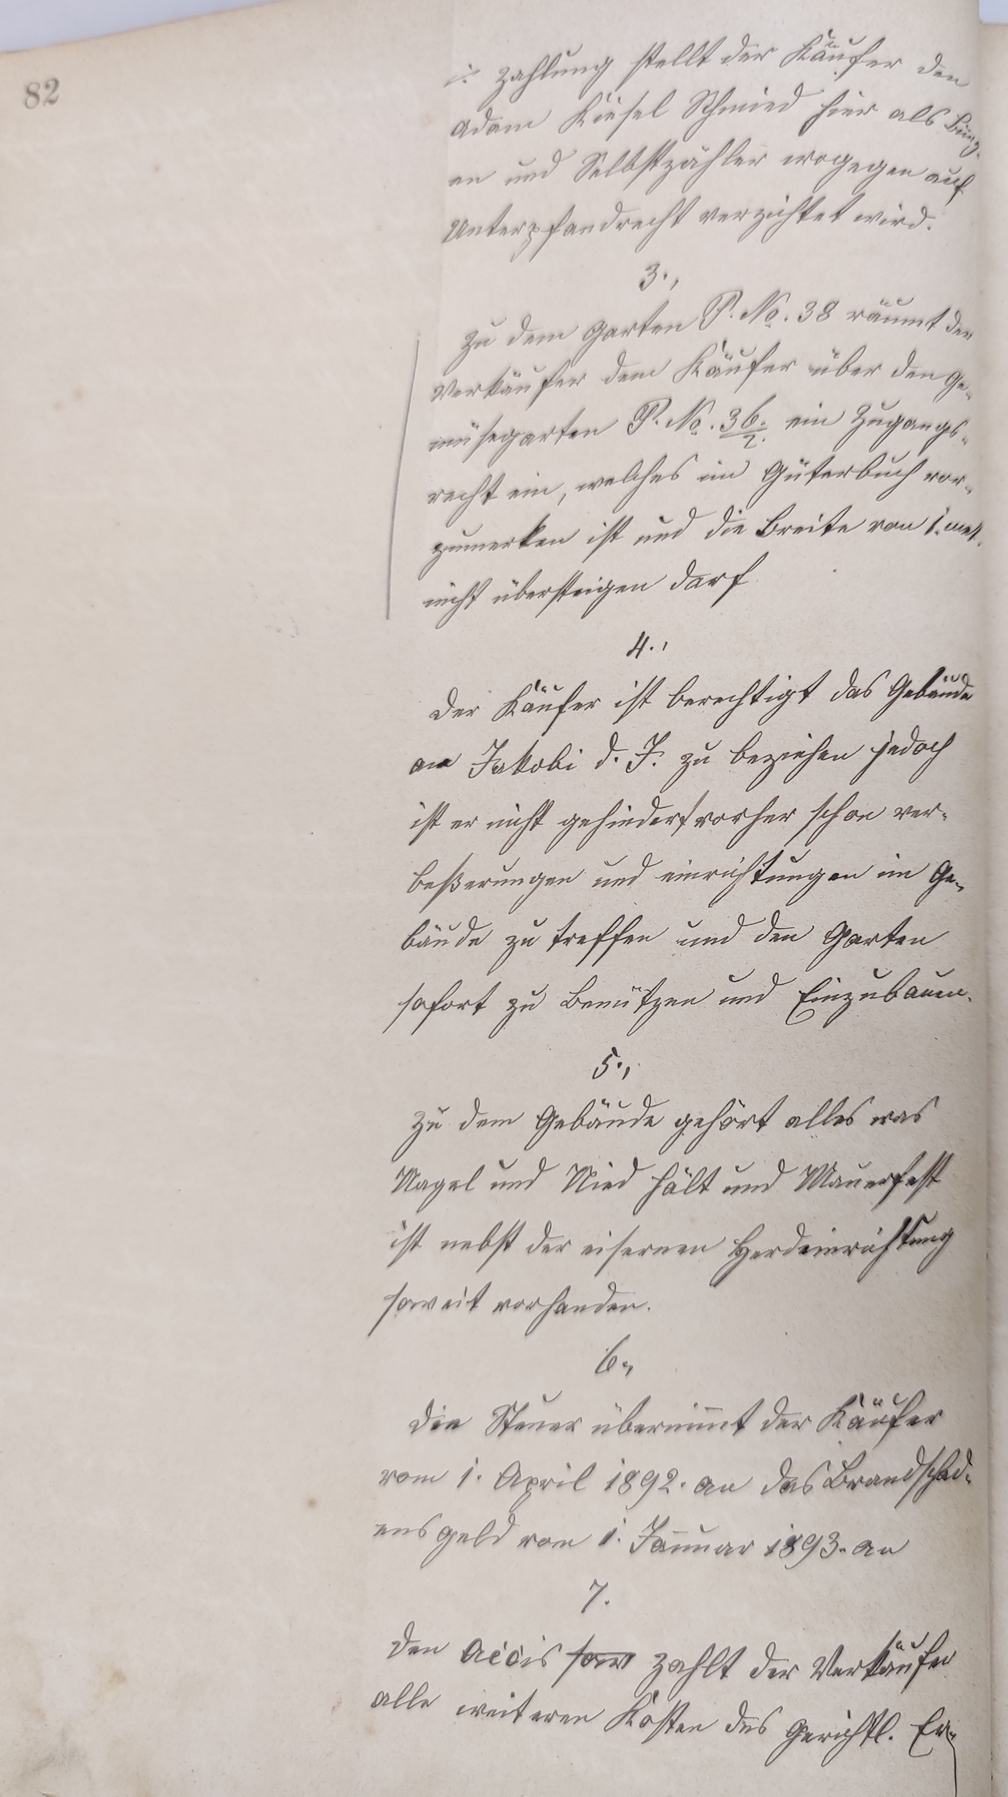 82
zahlung stellt der Käufer den
Adam Kiesel Schmied hier als Bürg-
en und Selbstzahler wogegen auf
Unterpfandrecht verzichtet wird.
3.,
Zu dem Garten P. No. 38 räumt der
Verkäufer dem Käufer über den Ge-
müsegarten P. No. 36/2. ein Zugangs-
recht ein, welches im Güterbuch vor-
zumerken ist und die Breite von 1. met.
nicht übersteigen darf
4.,
Der Käufer ist berechtigt das Gebäude
an Jakobi d. J. zu beziehen jedoch
ist er nicht gehindert vorher schon ver-
beßerungen und einrichtungen im Ge-
bäude zu treffen und den Garten
sofort zu Benützen und Einzubauen.
5.,
Zu dem Gebäude gehört alles was
Nagel und Nied hält und Mauerfest
ist nebst der eisernen Herdeinrichtung
soweit vorhanden.
6.,
Die Steuer übernimmt der Käufer
vom 1. April 1892. an das Brandschad-
ensgeld vom 1. Januar 1893. an
7.
Den Accis sow zahlt der Verkäufer
alle weiteren Kosten des Gerichtl. Er-